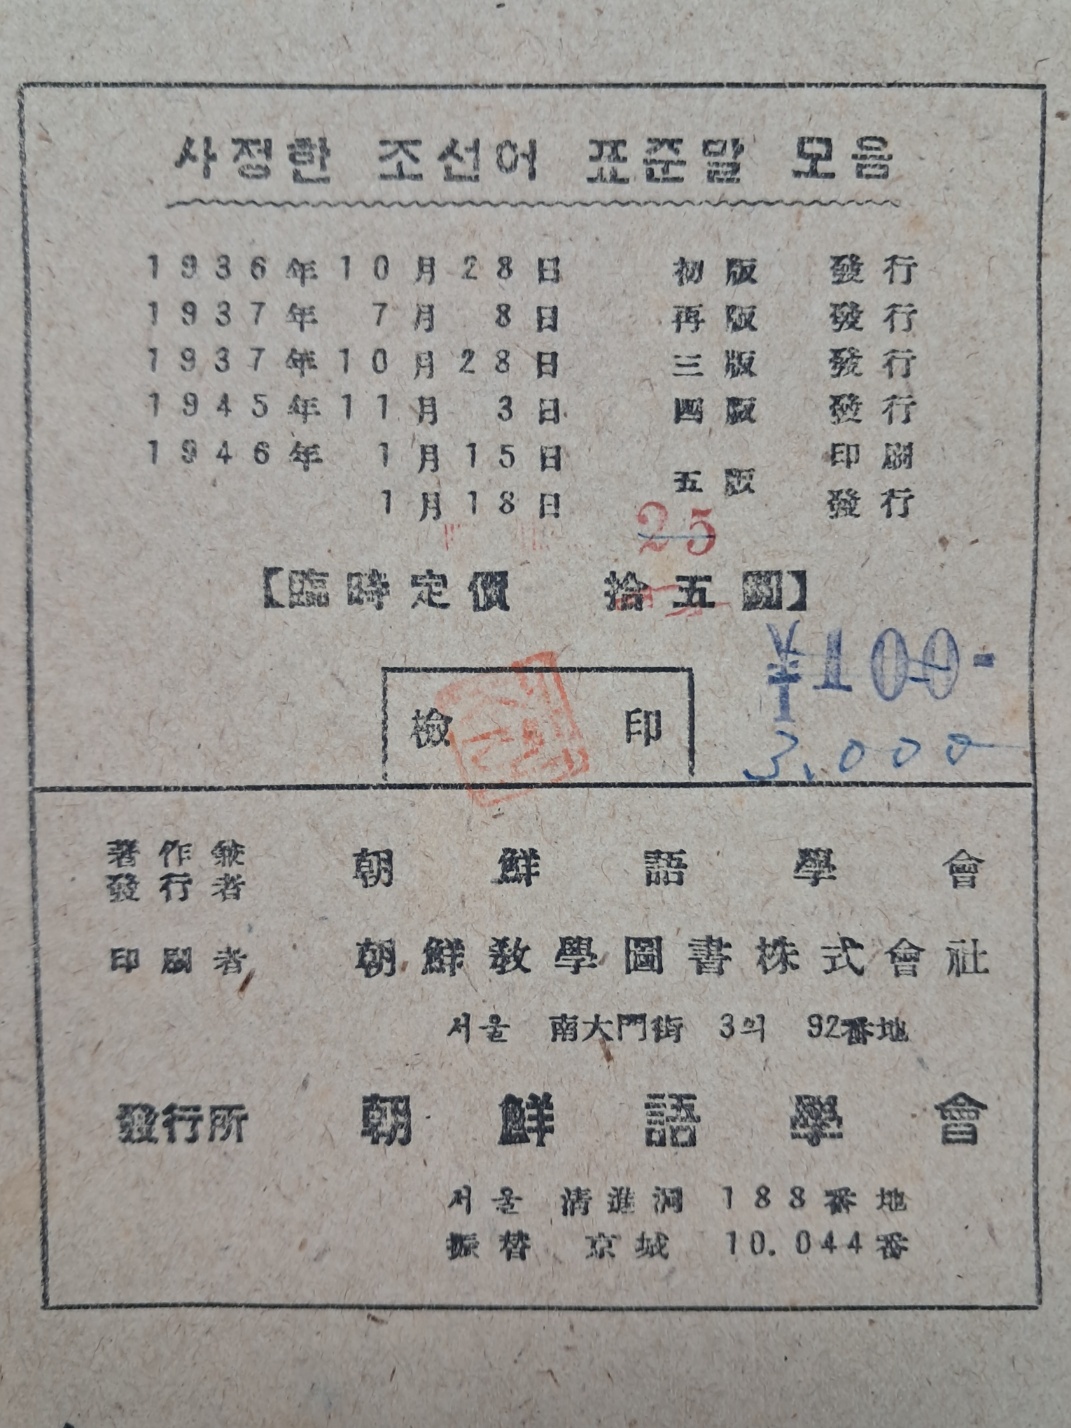 사정한 조선어 표준말 모음
1936年10月28日 初版 發行
1937年 7月 8日 再版 發行
1937年10月28日 三版 發行
1945年11月 3日 四版 發行
1946年 1月15日 印刷
五版
1月18日 發行
25
【臨時定價 拾五圓】
¥100-
檢 印
3,000
著作兼
發行者 朝鮮語學會
印刷者 朝鮮敎學圖書株式會社
서울 南大門街 3의 92番地
發行所 朝鮮語學會
서울 淸進洞 188番地
振替 京城 10.044番